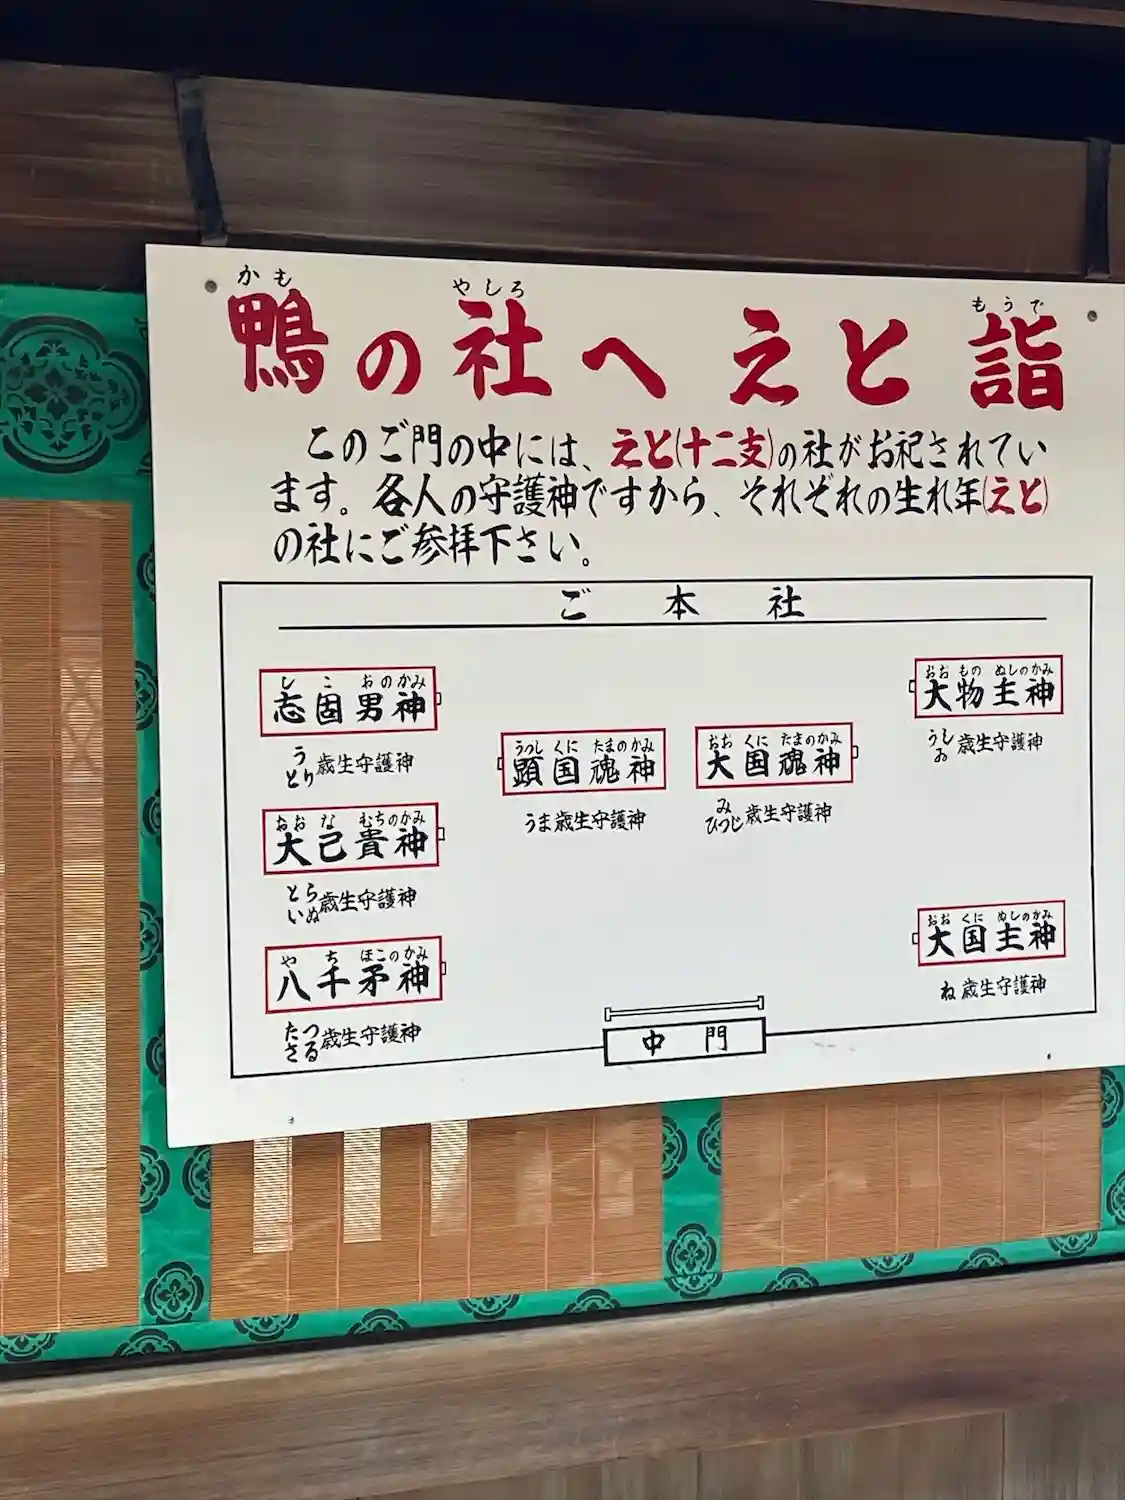 かも やしろ もうで
鴨の社へ えと詣
このご門の中には、えと(十二支)の社がお祀されてい
ます。各人の守護神ですから、それぞれの生れ年(えと)
の社にご参拝下さい。
ご 本 社
し こ おのかみ
志固男神
う とり 歳生守護神
おお な むちのかみ
大己貴神
とら いぬ 歳生守護神
や ち ほこのかみ
八千矛神
たつ さる 歳生守護神
うつし くに たまのかみ
顕国魂神
うま歳生守護神
おお くに たまのかみ
大国魂神
み ひつじ 歳生守護神
おお もの ぬしのかみ
大物主神
うし ゐ 歳生守護神
おお くに ぬしのかみ
大国主神
ね 歳生守護神
中 門